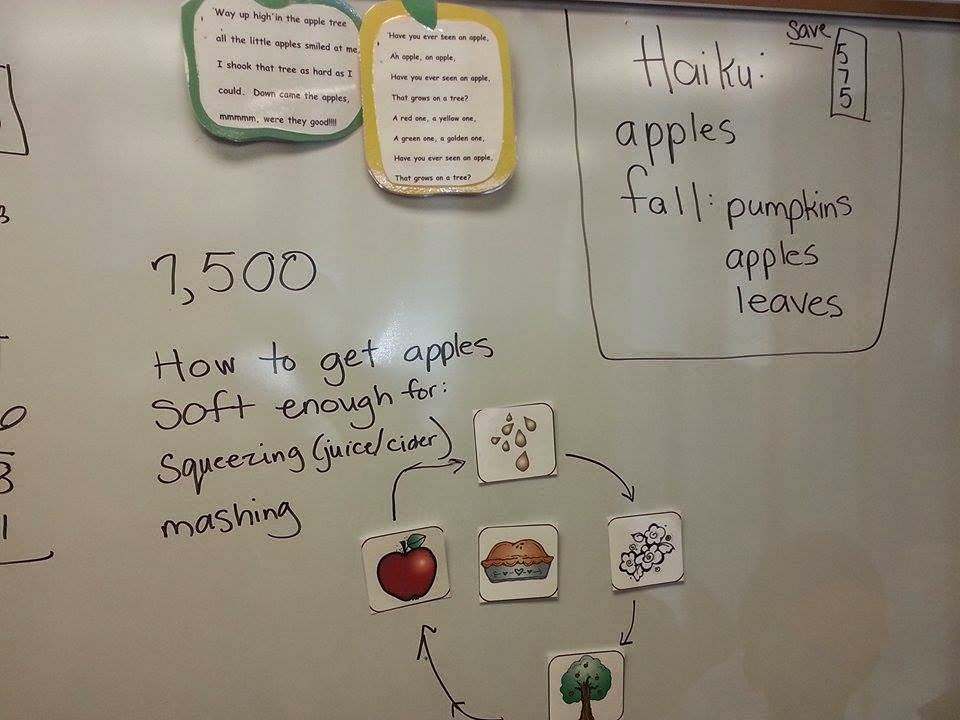 'Way up high' in the apple tree
all the little apples smiled at me
I shook that tree as hard as I
could. Down came the apples,
mmmmm, were they good!!!!
Have you ever seen an apple,
An apple, an apple,
Have you ever seen an apple,
That grows on a tree?
A red one, a yellow one,
A green one, a golden one,
Have you ever seen an apple,
That grows on a tree?
Save
5
7
5
Haiku:
apples
fall: pumpkins
apples
leaves
7,500
How to get apples
soft enough for:
squeezing (juice/cider)
mashing
3
0
3
1